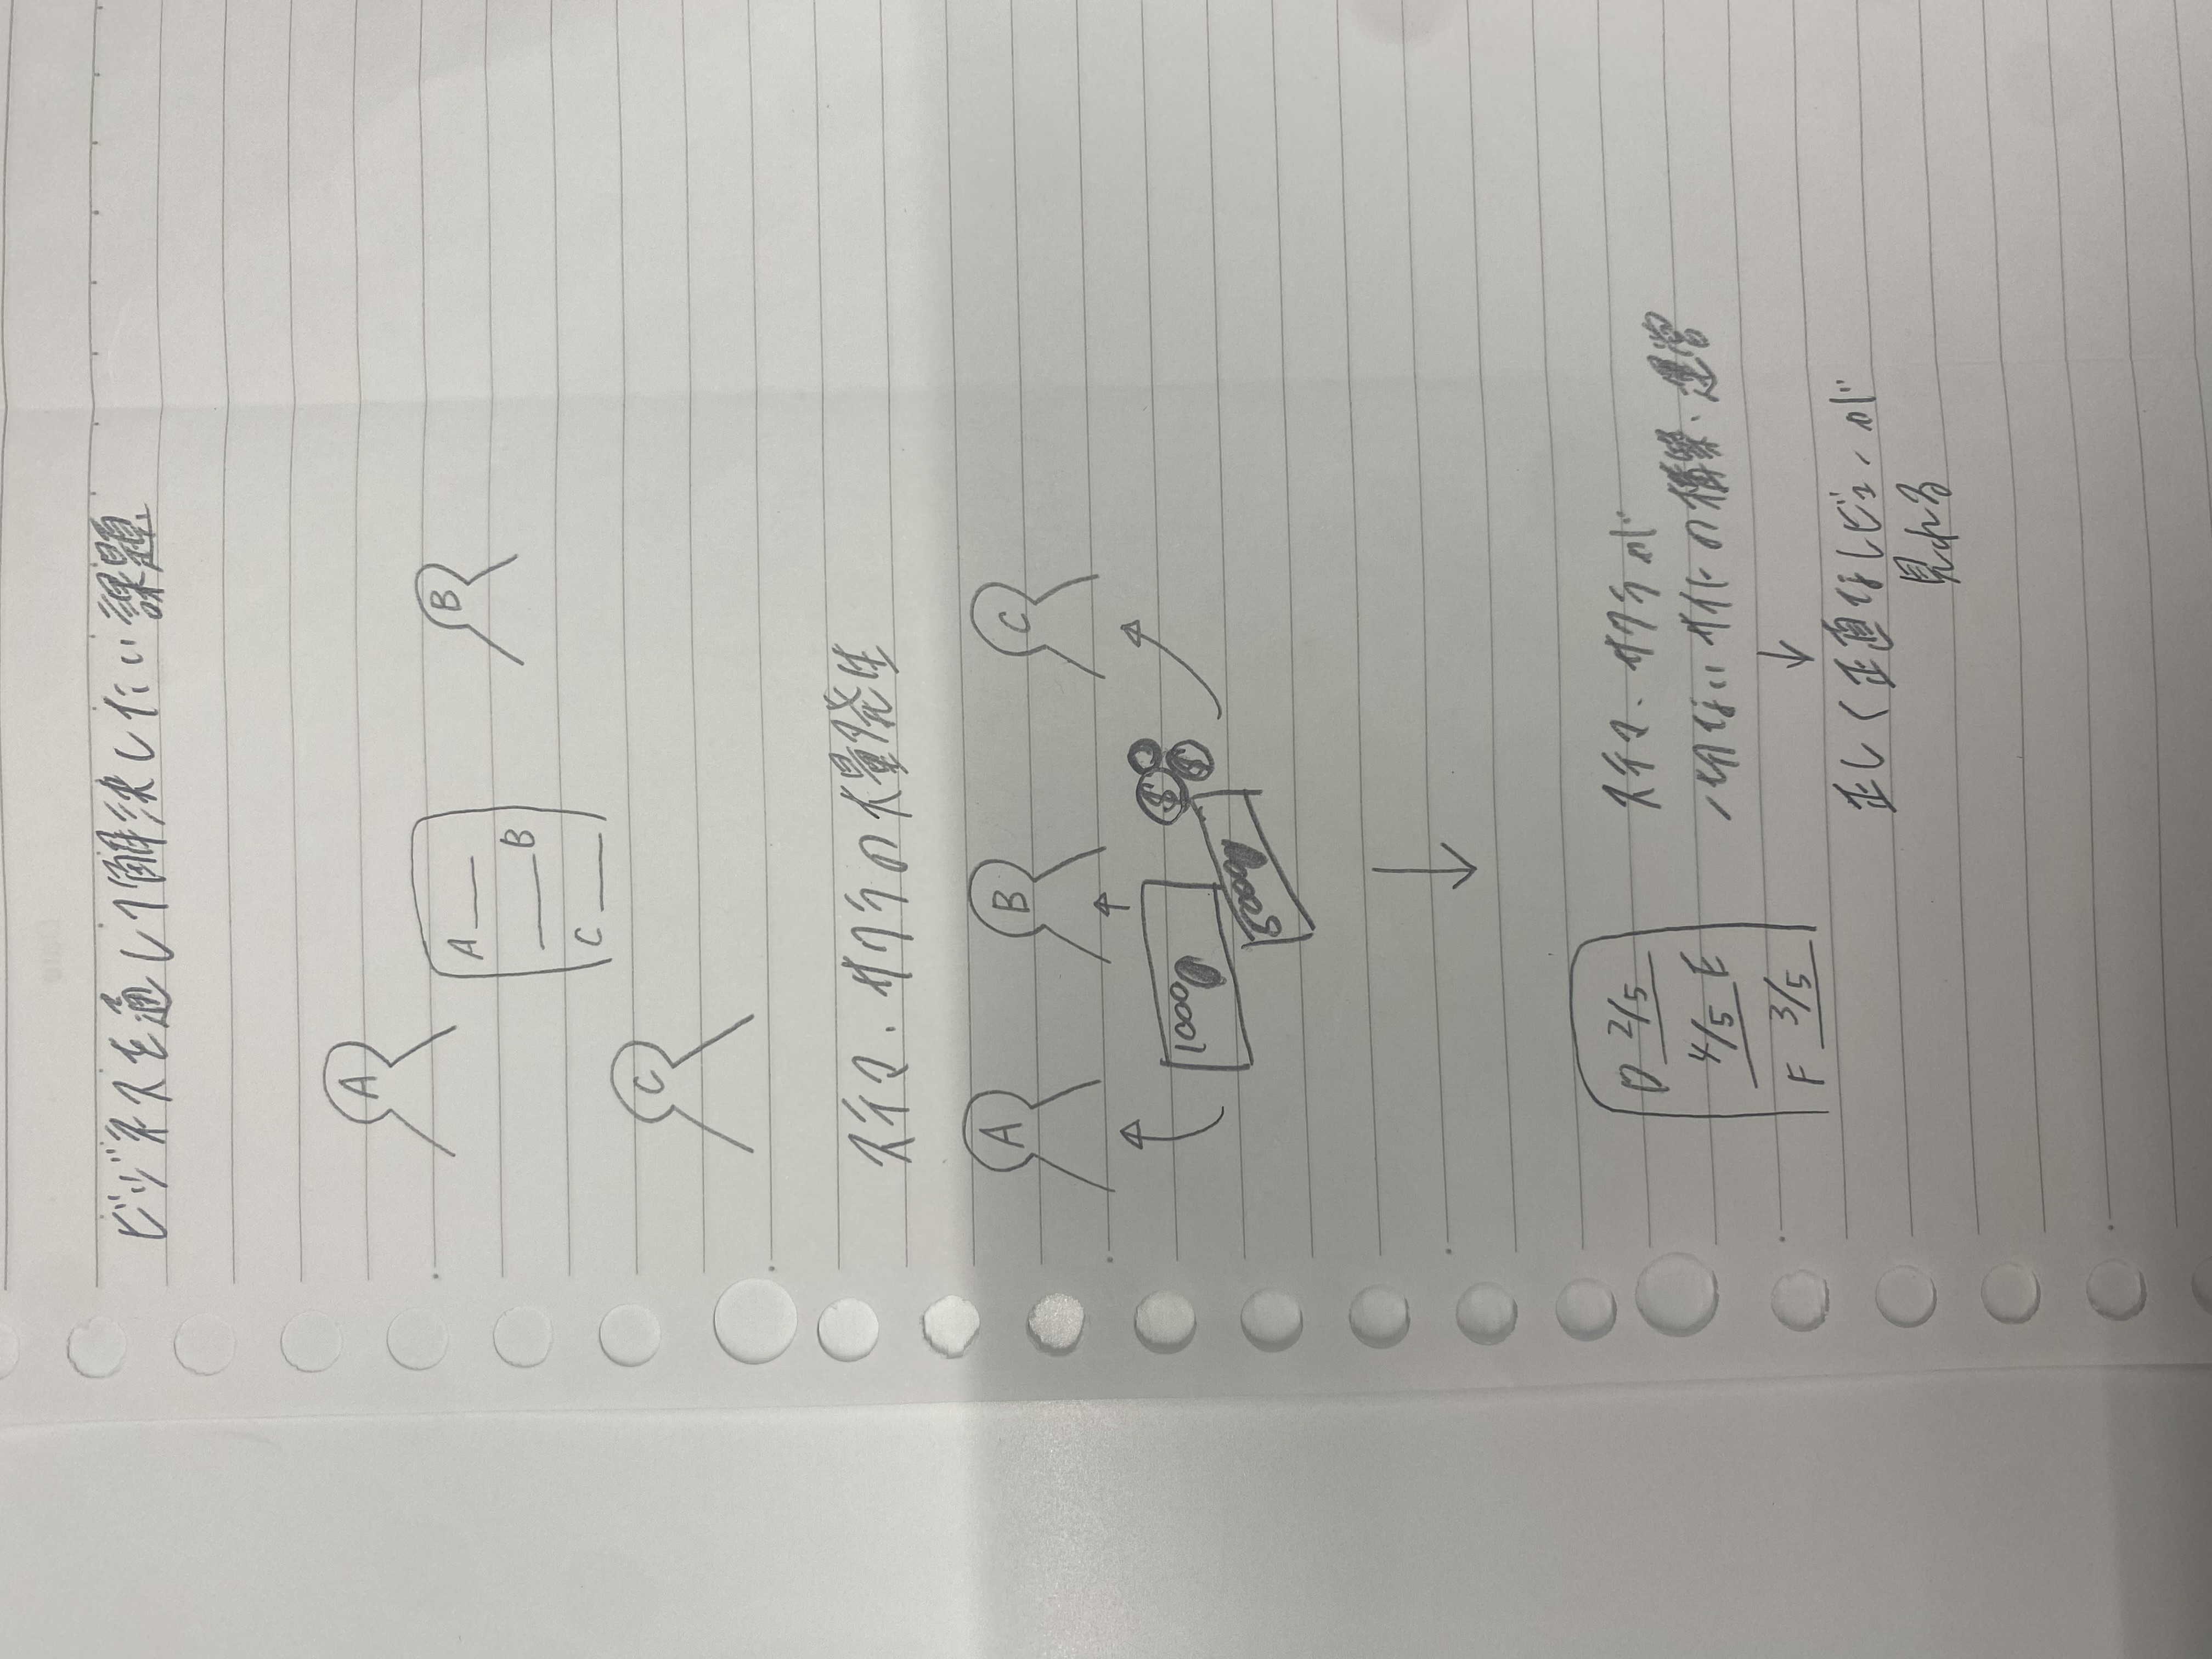 ビジネスを通して解決したい課題
A
B
A
B
C
C
ステマ、サクラの大量発生
A B C
10000
$
$
5000
D 2/5
4/5 E
F 3/5
ステマ、サクラが
一切ないサイトの構築、運営
正しく正直なレビューが
見れる